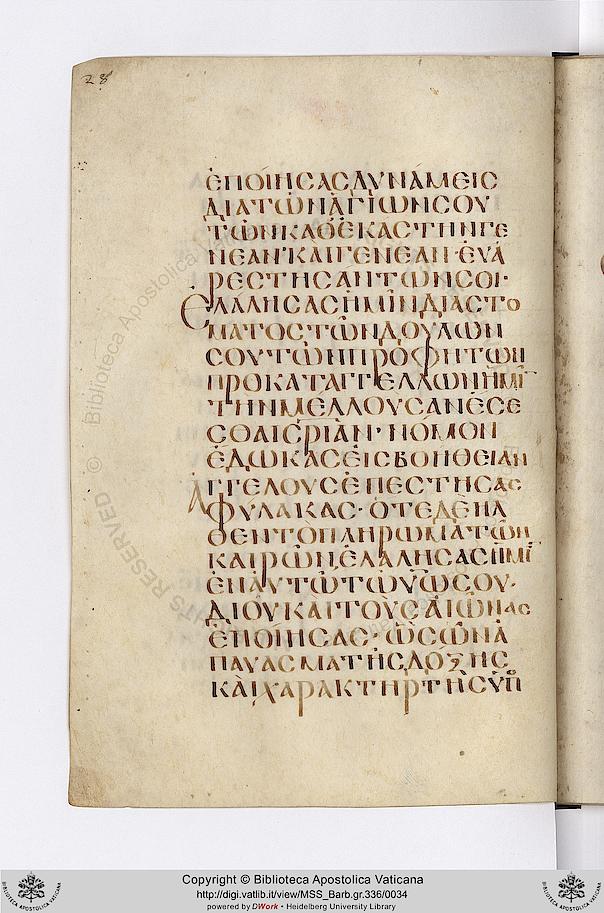 28
ἐποίησας δυνάμεις
διὰ τῶν ἁγίων σου
τῶν καθ' ἑκάστην γε
νεὰν καὶ γενεὰν· εὐα
ρεστησάντων σοι·
Ἐλάλησας ἡμῖν διὰ στό
ματος τῶν δούλων
σου τῶν προφητῶν
προκαταγγέλλων ἡμῖ
τὴν μέλλουσαν ἔσε
σθαι σρίαν· νόμον
ἔδωκας εἰς βοήθειαν
Ἀγγέλους ἐπέστησας
φύλακας· ὅτε δὲ ἦλ
θεν τὸ πλήρωμα τῶν
καιρῶν, ἐλάλησας ἡμῖ
ἐν αὐτῷ τῷ υω σου·
δι' οὗ καὶ τοὺς αἰῶνας
ἐποίησας· ὃς ὢν ἀ
παύασμα τῆς δόξης
καὶ χαρακτὴρ τῆς ὑπο
© Biblioteca Apostolica Vaticana
Copyright © Biblioteca Apostolica Vaticana
http://digi.vatlib.it/view/MSS_Barb.gr.336/0034
powered by DWork • Heidelberg University Library
BIBLIOTECA APOSTOLICA VATICANA
BIBLIOTECA APOSTOLICA VATICANA